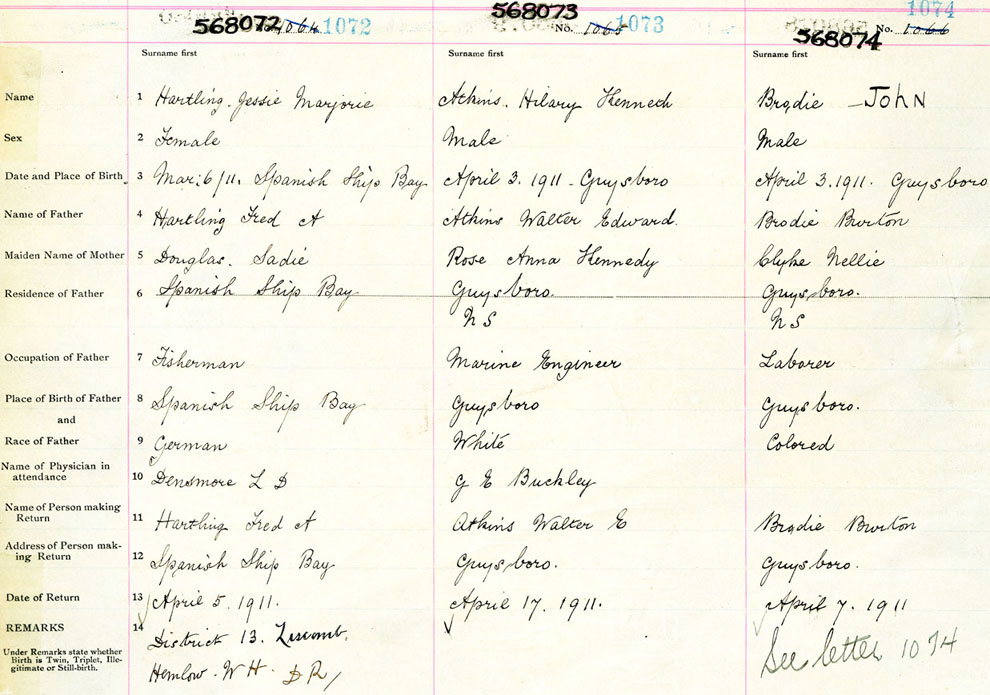 568072 1064 1072 568073 No. 1065 1073 568074 No. 1066 1074
Surname first Surname first Surname first
Name 1 Hartling. Jessie Marjorie Atkins. Hilary Kenneth Brodie - JohN
Sex 2 Female Male Male
Date and Place of Birth 3 Mar: 6/11. Spanish Ship Bay April 3. 1911 - Guysboro April 3. 1911. Guysboro
Name of Father 4 Hartling Fred A Atkins Walter Edward. Brodie Burton
Maiden Name of Mother 5 Douglas. Sadie Rose Anna Kennedy Clyke Nellie
Residence of Father 6 Spanish Ship Bay Guysboro. Guysboro.
N S N S
Occupation of Father 7 Fisherman Marine Engineer Laborer
Place of Birth of Father 8 Spanish Ship Bay Guysboro Guysboro.
and
Race of Father 9 German White Colored
Name of Physician in
attendance 10 Densmore L D G E Buckley
Name of Person making
Return 11 Hartling Fred A Atkins Walter E Brodie Burton
Address of Person mak-
ing Return 12 Spanish Ship Bay Guysboro. Guysboro.
Date of Return 13 April 5. 1911. April 17. 1911. April 7. 1911
REMARKS 14 District 13. Liscomb. See letter 1074
Under Remarks state whether
Birth is Twin, Triplet, Ille-
gitimate or Still-birth.
Hemlow. W H. D R /